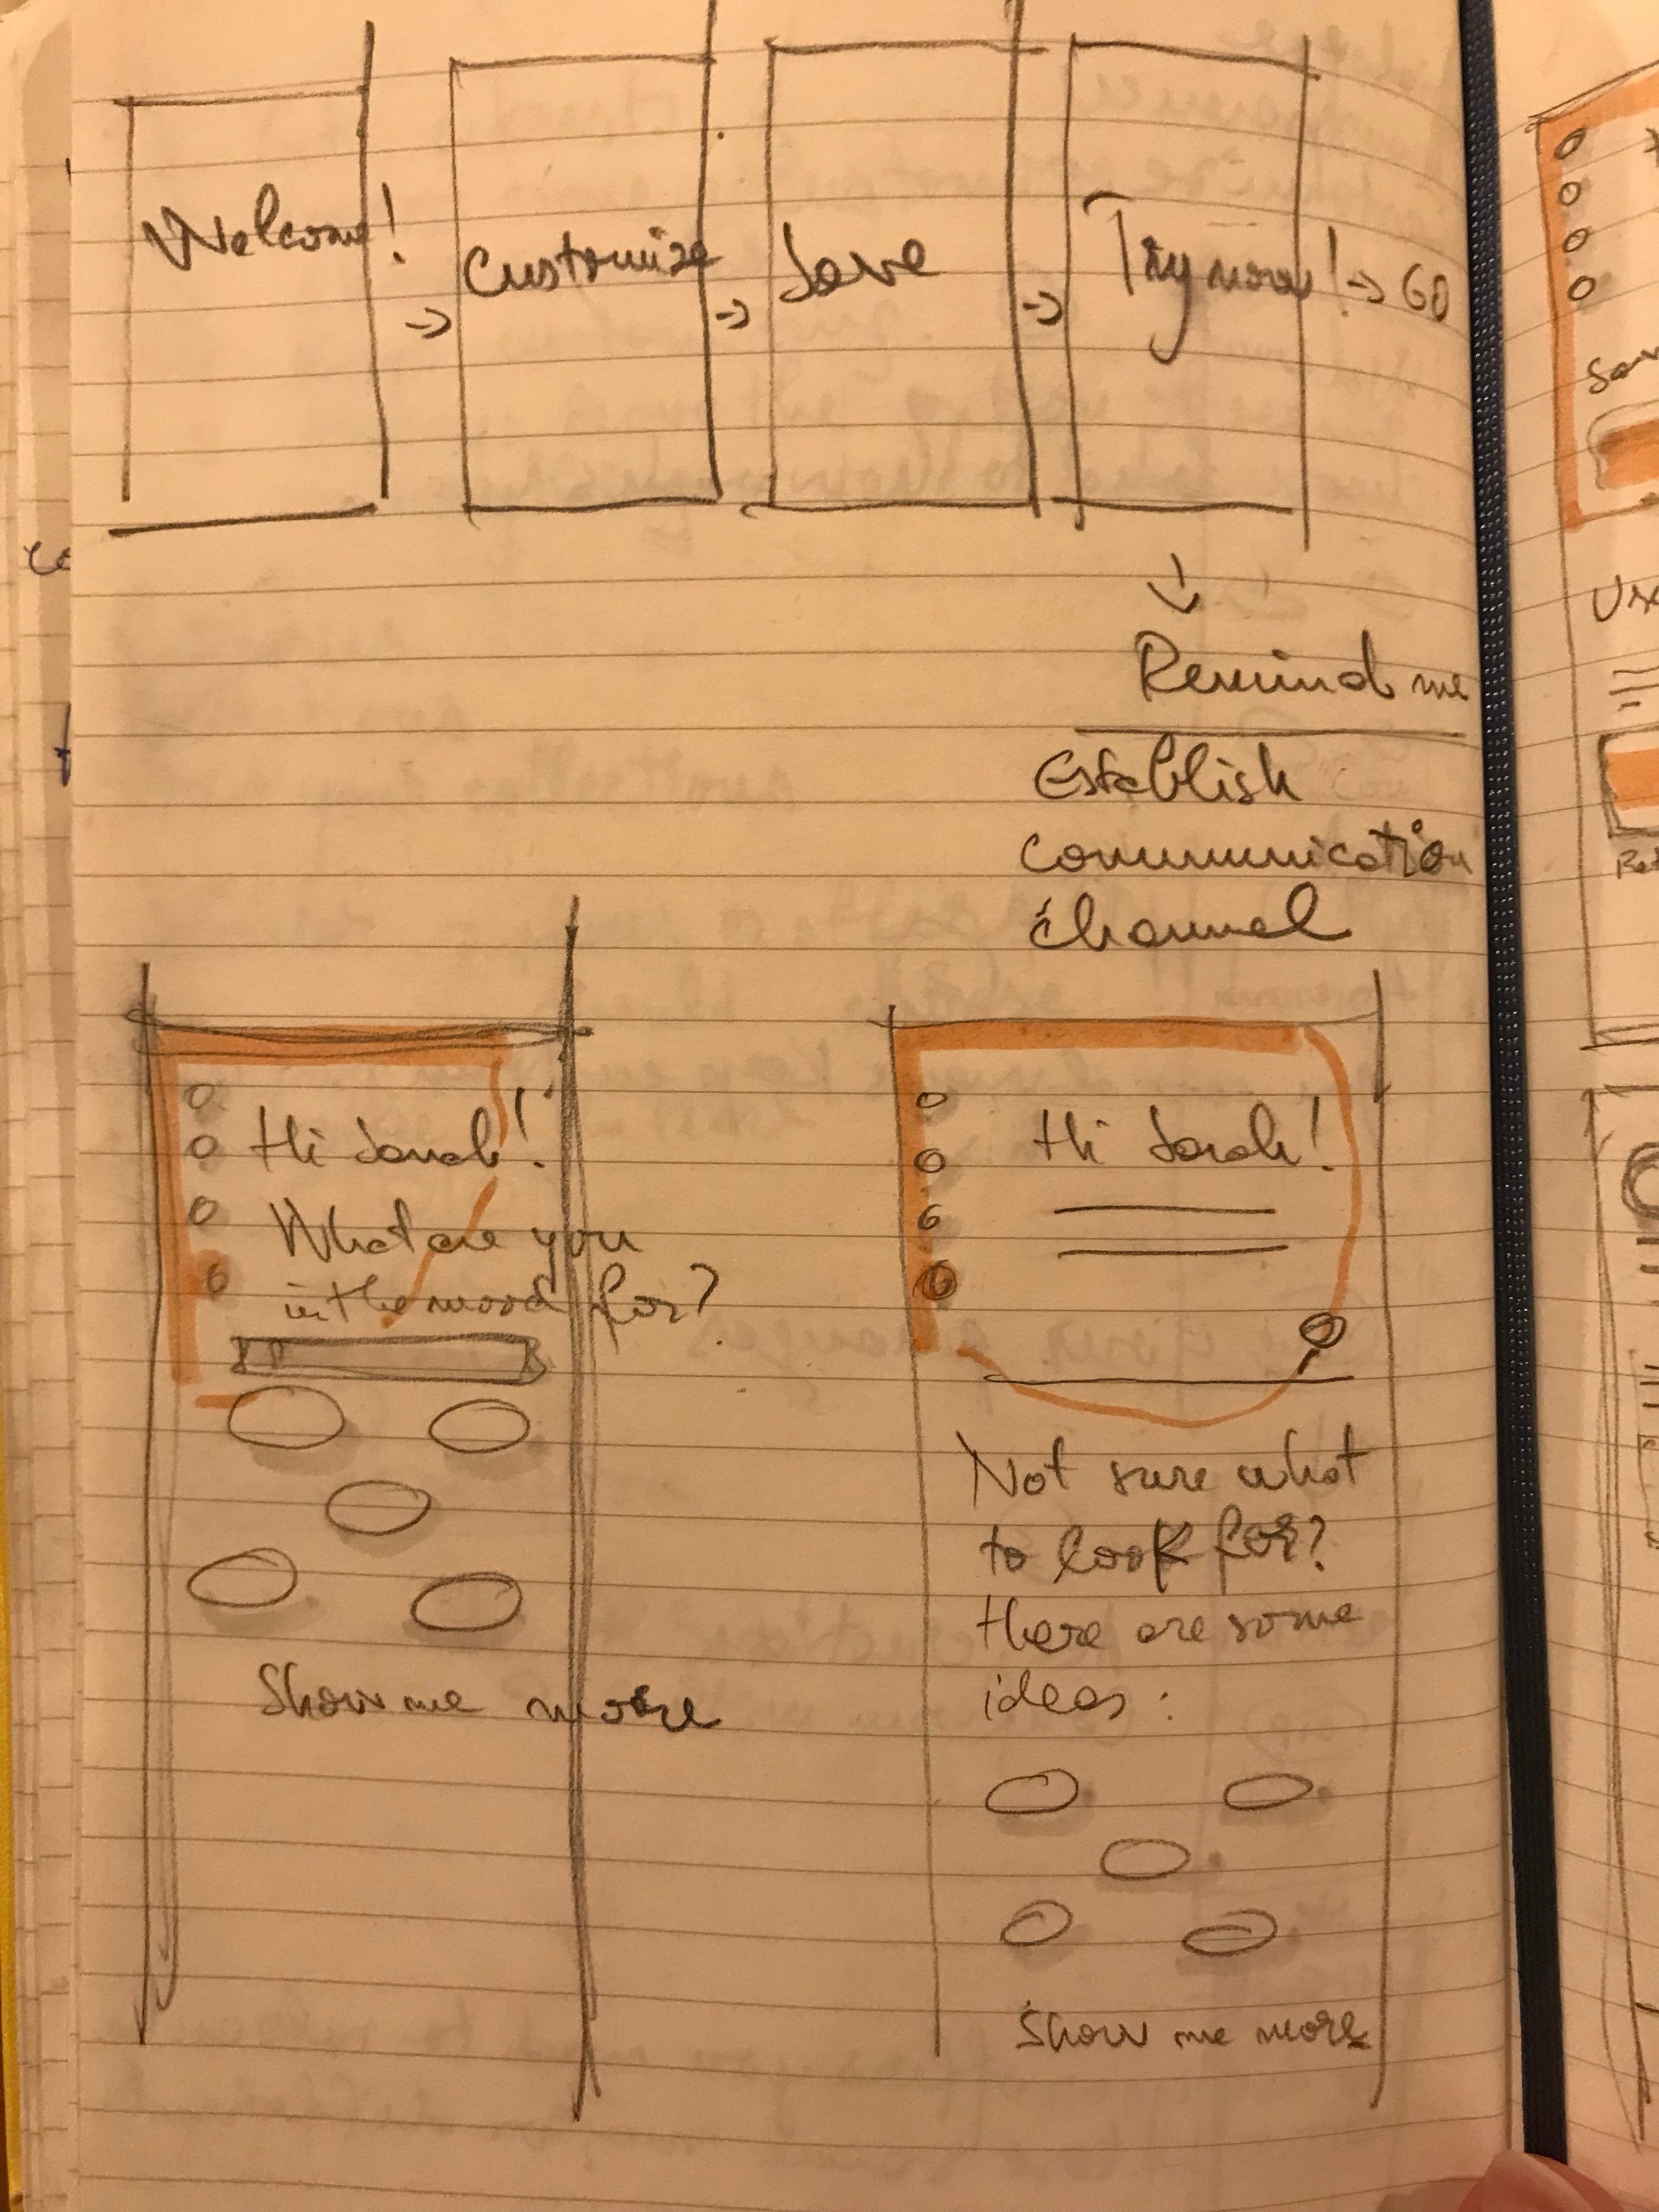 Welcome!
→ Customize
→ Save
→ Try now! → GO
↓
Remind me
Establish
communication
channel
Hi Sarah!
What are you
in the mood for?
Show me more
Hi Sarah!
Not sure what
to look for?
there are some
ideas:
Show me more